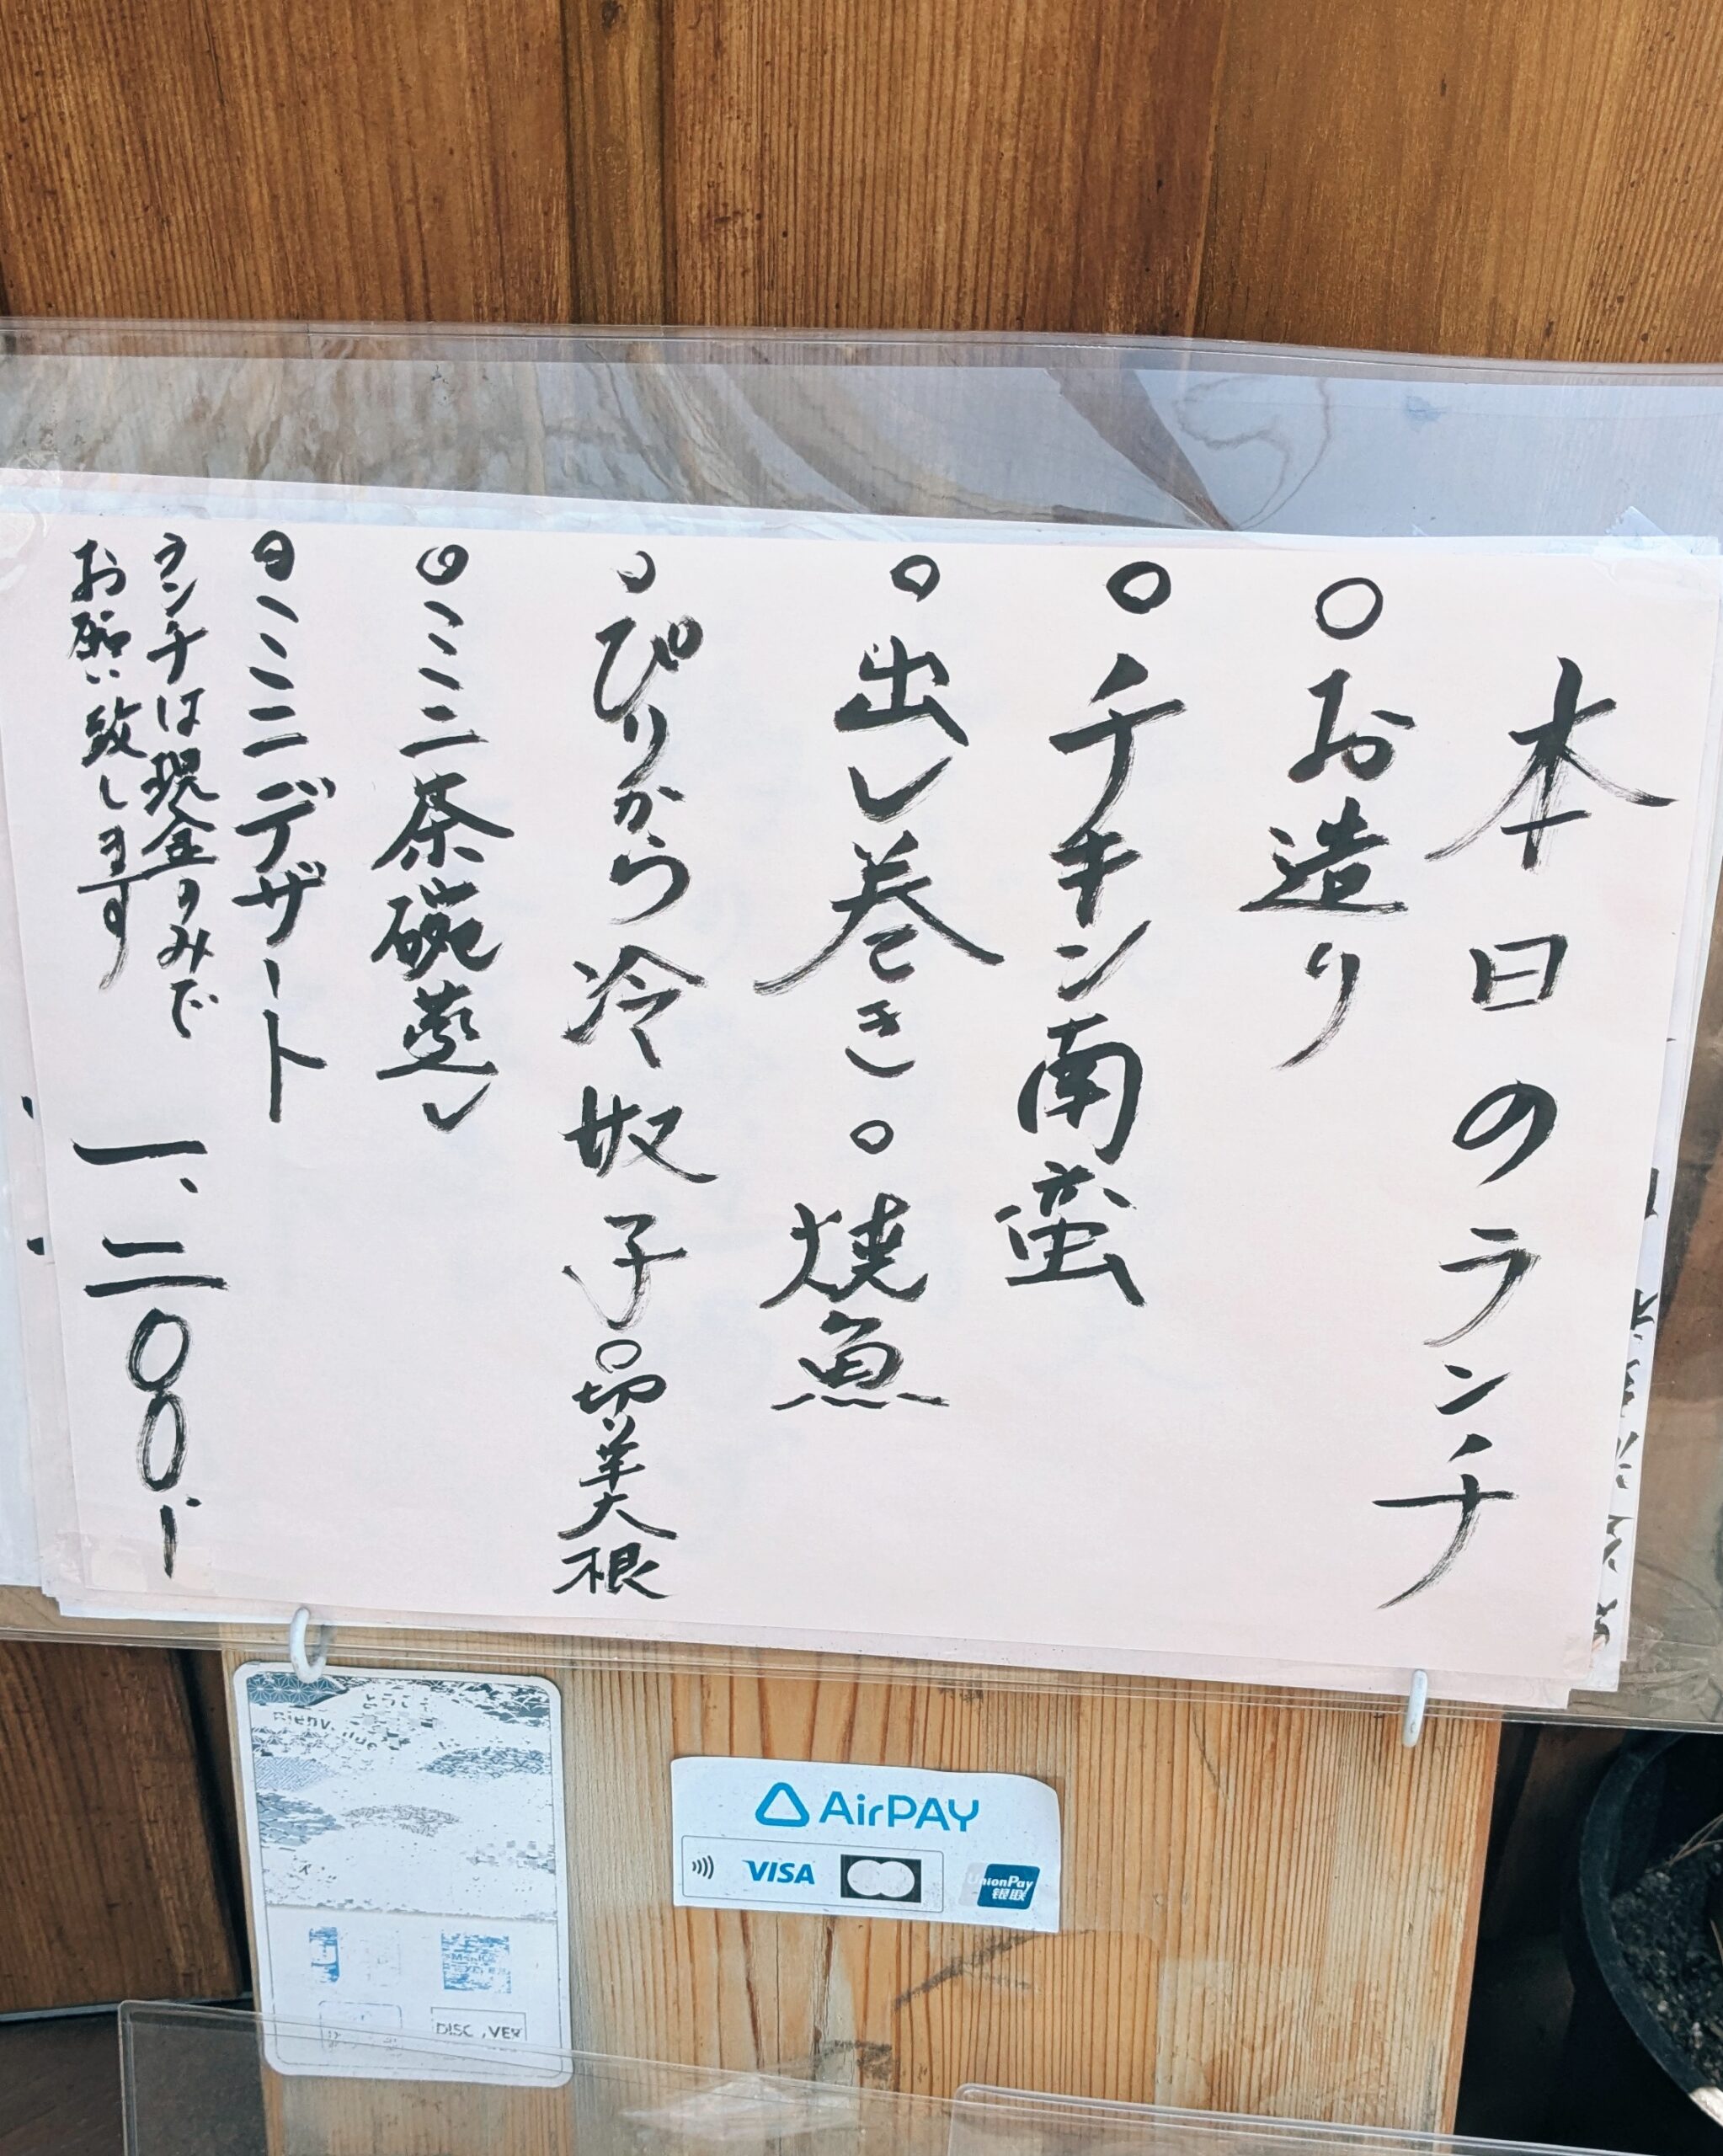 本日のランチ
○お造り
○チキン南蛮
○出し巻き○焼魚
○ぴりから冷奴子○切干大根
○ミニ茶碗蒸し
○ミニデザート
ランチは現金のみで
お願い致します
一、二〇〇、ー
AirPAY
VISA
UnionPay
银联